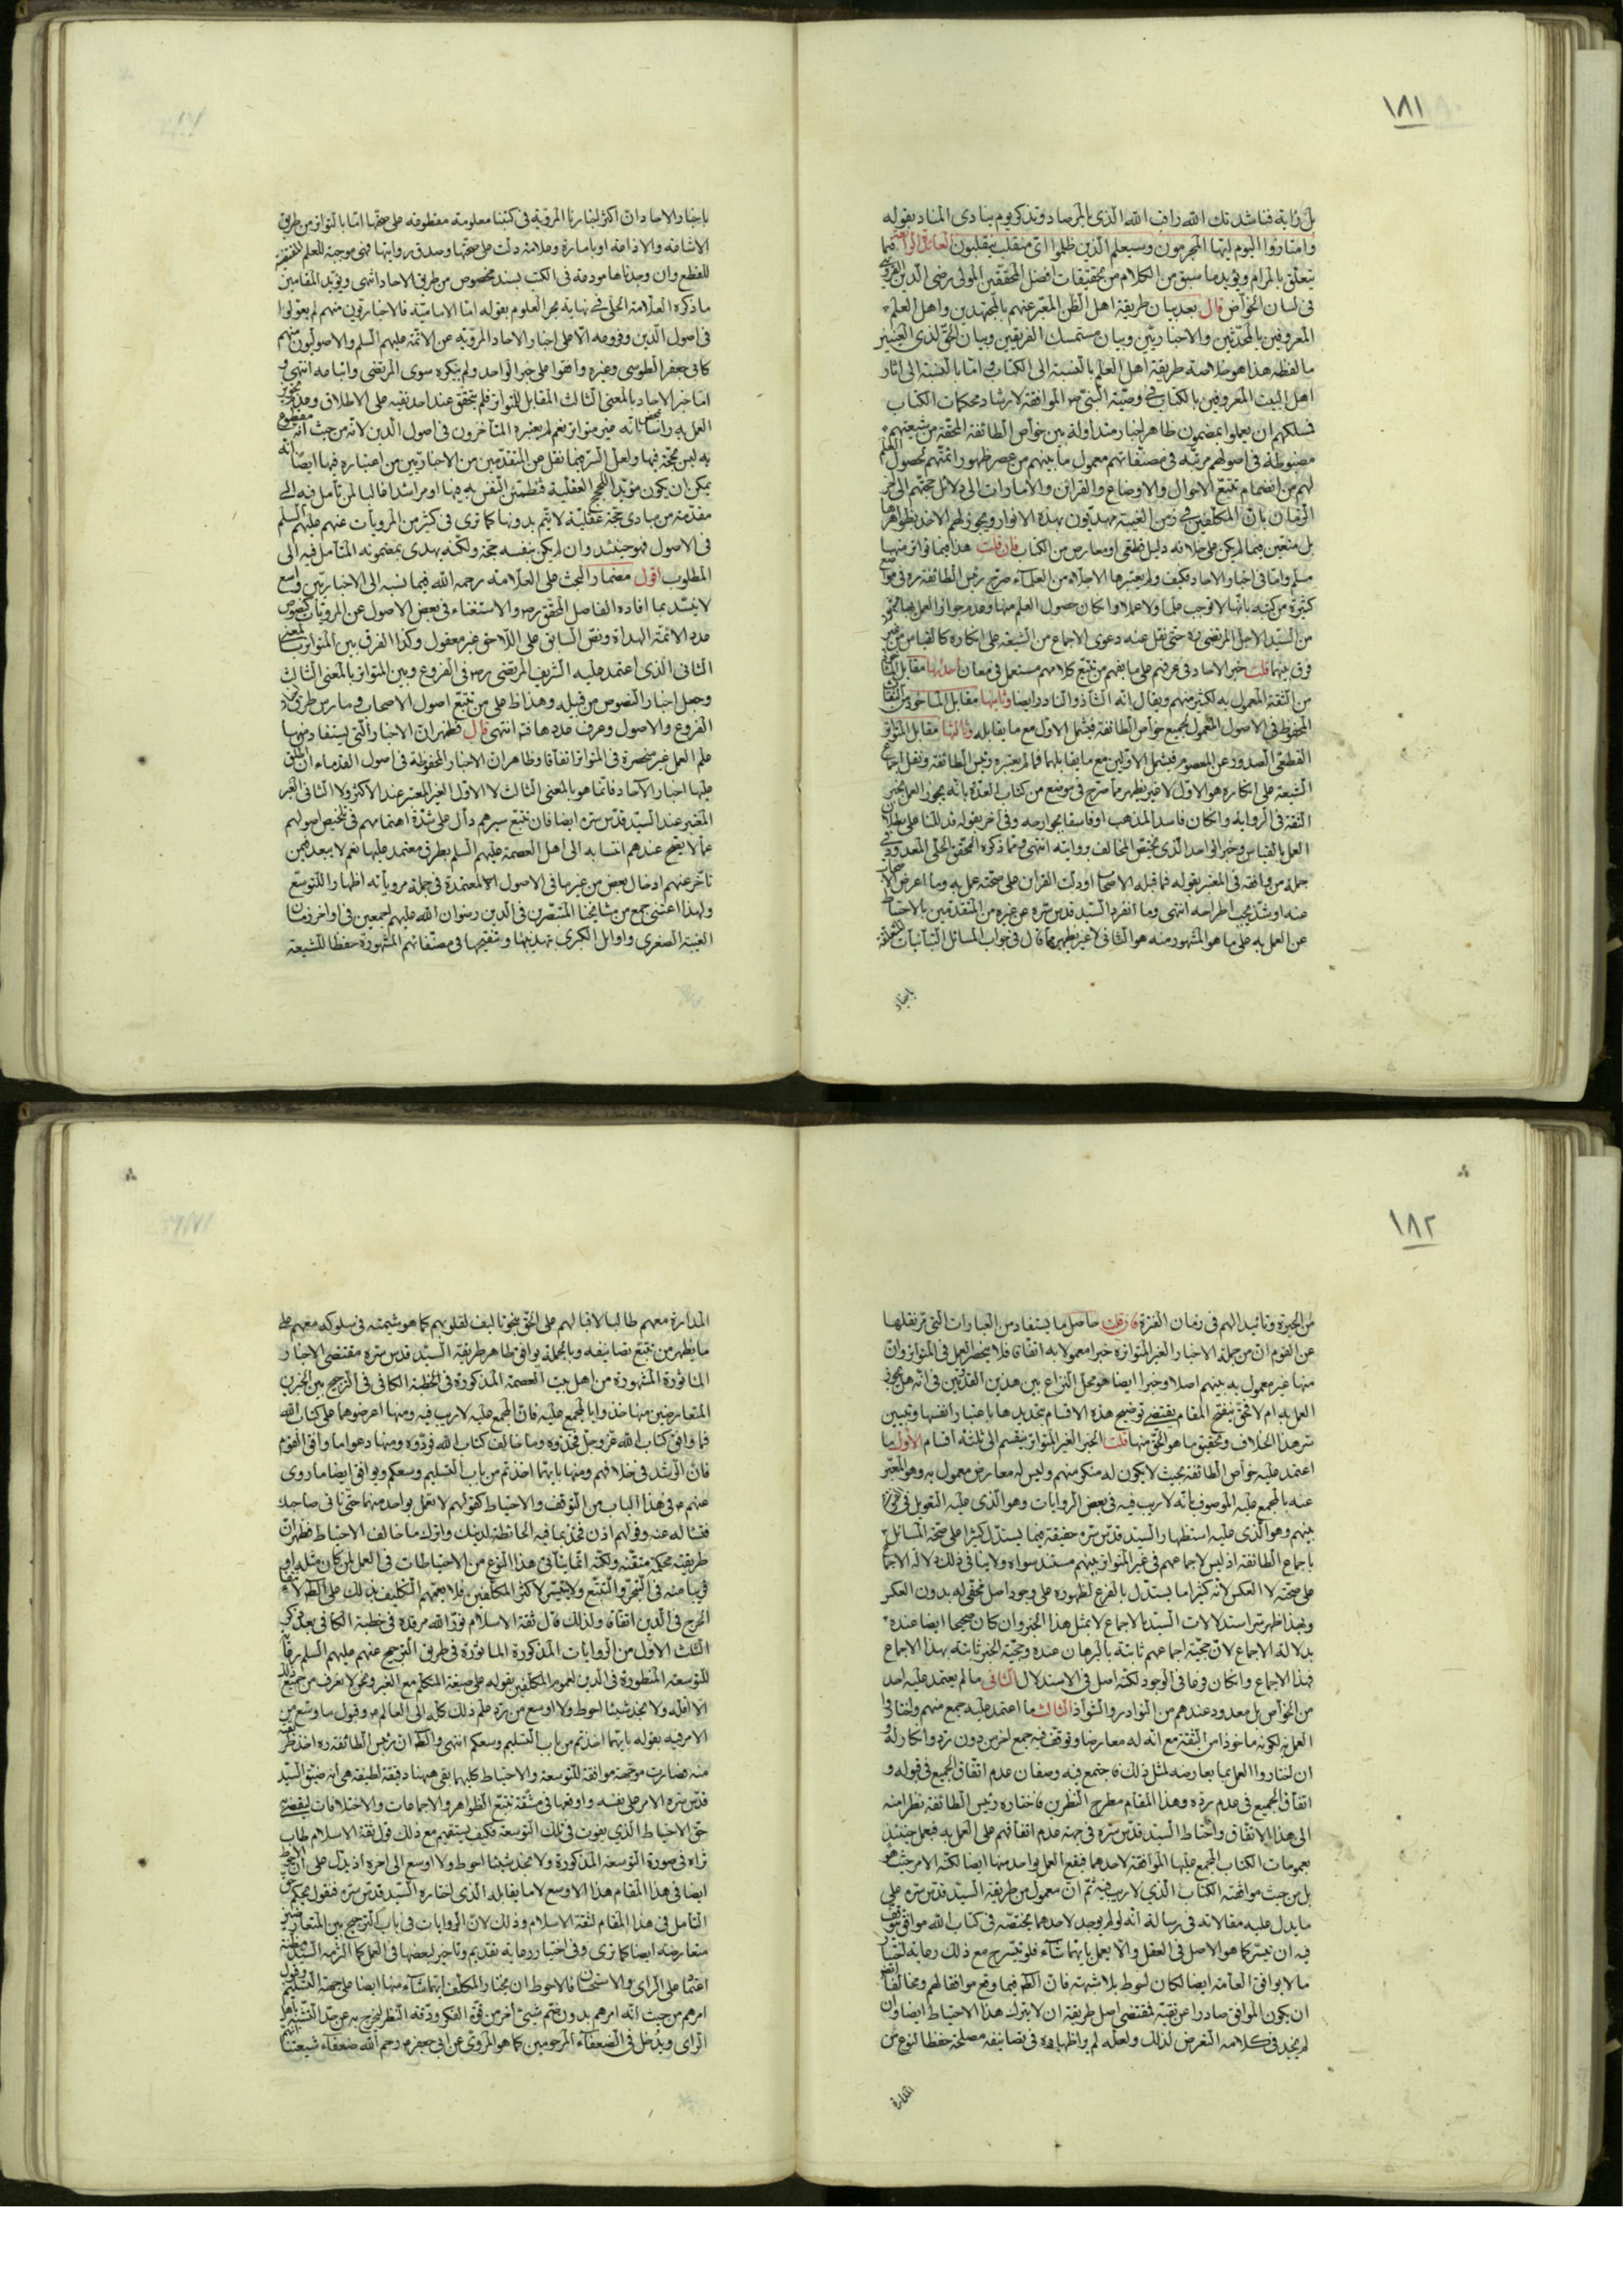 ١٨١
بل زاية فناشدتك الله راقب الله الذى بالمرصاد وتذكر يوم ينادى المناد بقوله
وامتازوا اليوم ايها المجرمون وسيعلم الذين ظلموا اى منقلب ينقلبون الرابعة فيما
يتعلق بالمرام ويؤيد ما سبق من الكلام من تحقيقات افضل المحققين المولى رضى الدين القزوينى
فى لسان الخواص قال بعد بيان طريقة اهل الظن المعبر عنهم بالمجتهدين واهل العلم
المعروفين بالمحدثين والاخباريين وبيان مستمسك الفريقين وبيان الحق لدى
ما لفظه هذا هو خلاصة طريقة اهل العلم بالنسبة الى الكتاب واما بالنسبة الى اثار
اهل البيت المعروفين بالكتاب فى وصية النبى ص الموافقة لارشاد محكمات الكتاب
فسلكهم ان يعملوا بمضمون ظاهر اخبار متداولة بين خواص الطائفة المحقة من شيعتهم
مضبوطة فى اصولهم مرتبة فى مصنفاتهم معمول ما بينهم من عصر ظهور ائمتهم لحصول العلم
لهم من انضمام تتبع الاحوال والاوضاع والقرائن والامارات الى دلائل حجتهم الى اخر
الزمان بان المكلفين فى زمن الغيبة مهديون بهذه الانوار ويجوز لهم الاخذ بظواهرها
بل متعين فيما لم يكن على خلافه دليل قطعى او معارض من الكتاب فان قلت هذا فيما تواتر منها
مسلم واما فى اخبار الاحاد فكيف ولم يعتبرها الاجلاء من العلماء صرح رئيس الطائفة ره فى مواضع
كثيرة من كتبه بانها لا توجب علما ولا عملا وامكان حصول العلم منها وعدم جواز العمل بها محكى
من السيد الاجل المرتضى ره حتى نقل عنه دعوى الاجماع من الشيعة على انكاره كالقياس من غير
فرق بينهما قلت خبر الاحاد فى عرفهم على ما يفهم من تتبع كلامهم مستعمل فى معان احدها مقابل
من الثقة المعمول به لكثير منهم ويقال انه الشاذ والنادر ايضا وثانيها مقابل الماخوذ من الثقات
المحفوظ فى الاصول المعمول لجميع خواص الطائفة فيشمل الاول مع ما يقابله وثالثها مقابل المتواتر
القطعى الصدور عن المعصوم فيشمل الاولين مع ما يقابلهما فما لم يعتبره رئيس الطائفة ونقل اجماع
الشيعة على انكاره هو الاول لا غير يظهر ما صرح فى موضع من كتاب العدة بانه يجوز العمل بخبر
الثقة فى الرواية وان كان فاسد المذهب او فاسقا بجوارحه وفى اخر بقوله قد دللنا على بطلان
العمل بالقياس وخبر الواحد الذى يختص المخالف بروايته انتهى ومما ذكره المحقق الحلى المعدود فى
جملة من وافقه فى المعتبر بقوله فما قبله الاصحاب او دلت القرائن على صحته عمل به وما اعرض الاصحاب
عنه او شذ يجب اطراحه انتهى وما انفرد السيد قدس سره عن غيره من المتقدمين بالاحتياط
عن العمل به على ما هو المشهور منه هو الثانى لا غير يظهر مما قال فى جواب المسائل التبانيات
باخبار
باخبار الاحاد ان اكثر اخبارنا المروية فى كتبنا معلومة مقطوعة على صحتها اما بالتواتر من طريق
الاشاعة والاذاعة او بامارة وعلامة دلت على صحتها وصدق رواتها فهى موجبة للعلم مقتضية
للقطع وان وجدناها مودعة فى الكتب بسند مخصوص من طريق الاحاد انتهى ويؤيد المقامين
ما ذكره العلامة الحلى فى نهاية بحر العلوم بقوله اما الامامية فالاخباريون منهم لم يعولوا
فى اصول الدين وفروعه الا على اخبار الاحاد المروية عن الائمة عليهم السلم والاصوليون منهم
كابى جعفر الطوسى وغيره وافقوا على خبر الواحد ولم ينكره سوى المرتضى واتباعه انتهى و
اما خبر الاحاد بالمعنى الثالث المقابل للتواتر فلم يتحقق عند احد نفيه على الاطلاق
العمل به راسا بمحض انه غير متواتر نعم لم يعتبره المتاخرون فى اصول الدين لانه من حيث انه
به ليس بحجة فيها ولعل السر فيما نقل عن المتقدمين من الاخباريين من اعتباره فيها ايضا انه
يمكن ان يكون مؤيد اللحجج العقلية فتطمئن النفس به فيها او مراشدا غالبا لمن تأمل فيه الى
مقدمة من مبادى حجة عقلية لا يتم بدونها كما ترى فى كثير من المرويات عنهم عليهم السلم
فى الاصول فهو حينئذ وان لم يكن بنفسه حجة ولكنه يهدى بمضمونه المتأمل فيه الى
المطلوب اقول مضمار البحث على العلامة رحمه الله فيما نسبه الى الاخباريين واسع
لا ينسد بما افاده الفاضل المحقق ره والاستغناء فى بعض الاصول عن المرويات كنصوص
عدد الائمة الهداة ونص السابق على اللاحق غير معقول وكذا الفرق بين المتواتر بالمعنى
الثانى الذى اعتمد عليه الشريف المرتضى ره فى الفروع وبين المتواتر بالمعنى الثالث
وجعل اخبار النصوص من قبيله وهذا ظ على من تتبع اصول الاصحاب ومارس طرق
الفروع والاصول وعرف عددها فتم انتهى قال فظهر ان الاخبار التى يستفاد منها
علم العمل غير منحصرة فى المتواتر اتفاقا وظاهر ان الاخبار المحفوظة فى اصول القدماء ان اطلق
عليها اخبار الآحاد فانما هو بالمعنى الثالث لا الاول الغير المعتبر عند الاكثر ولا الثانى الغير
المعتبر عند السيد قدس سره ايضا فان تتبع سيرهم دال على شدة اهتمامهم فى تلخيص اصولهم
عما لا يصح عندهم انتسابه الى اهل العصمة عليهم السلم بطرق معتمد عليها نعم لا يبعد فيمن
تأخر عنهم ادخال بعض من غير ما فى الاصول المعتمدة فى جملة مروياته اظهارا للتوسع
ولهذا اعتنى جمع من مشايخنا المتبصرين فى الدين رضوان الله عليهم اجمعين فى اواخر زمان
الغيبة الصغرى واوايل الكبرى بتهذيبها وتنقيحها فى مصنفاتهم المشهورة حفظا للشيعة
١٨٢
من الحيرة وتائيدا لهم فى زمان الفترة فان قلت حاصل ما يستفاد من العبارات التى مر نقلها
عن القوم ان من جملة الاخبار الغير المتواترة خبرا معمولا به اتفاقا فلا ينحصر العمل فى المتواتر وان
منها غير معمول به بينهم اصلا وخبرا ايضا هو محل النزاع بين هذين الفريقين فى انه هل يجوز
العمل به ام لا فحق تنقيح المقام يقتضى توضيح هذه الاقسام بتحديدها باعتبار انفسها وتبيين
سر هذا الخلاف وتحقيق ما هو الحق منها قلت الخبر الغير المتواتر ينقسم الى ثلثة اقسام الاول ما
اعتمد عليه خواص الطائفة بحيث لا يكون له منكر منهم وليس له معارض معمول به وهو المعبر
عنه بالمجمع عليه الموصوف بانه لا ريب فيه فى بعض الروايات وهو الذى عليه التعويل فى
بينهم وهو الذى عليه استظهار السيد قدس سره حقيقة فيما يستدل كثيرا على صحة المسائل
باجماع الطائفة اذ ليس لاجماعهم فى غير المتواتر بينهم مستند سواه ولا ينافى ذلك دلالة الاجماع
على صحته لا العكس لانه كثيرا ما يستدل بالفرع لظهوره على وجود اصل مخفى له بدون العكس
وبهذا ظهر سر استدلالات السيد بالاجماع لا بمثل هذا الخبر وان كان صحيحا ايضا عنده
بدلالة الاجماع لان حجية اجماعهم ثابتة بالبرهان عنده وحجية الخبر ثابتة بهذا الاجماع
فهذا الاجماع وان كان فرعا فى الوجود لكنه اصل فى الاستدلال الثانى ما لم يعتمد عليه احد
من الخواص بل معدود عندهم من النوادر والشواذ الثالث ما اعتمد عليه جمع منهم واختاروا
العمل به لكونه ماخوذا من الثقة مع انه له معارضا وتوقف فيه جمع اخر من دون رد وانكار او
ان اختاروا العمل بما يعارضه لمثل ذلك فاجتمع فيه وصفان عدم اتفاق الجميع فى قوله و
اتفاق الجميع فى عدم رده وهذا المقام مطرح النظرين فاختاره رئيس الطائفة نظرا منه
الى هذا الاتفاق واحتاط السيد قدس سره فى جهة عدم اتفاقهم على العمل به فعمل حينئذ
بعمومات الكتاب المجمع عليها الموافقة لاحدهما فيقع العمل بواحد منها ايضا لكنه الامر حيث هو
بل من حيث موافقته الكتاب الذى لا ريب فيه ثم ان معمول من طريقة السيد قدس سره على
ما يدل عليه مقالاته فى رسالة انه لو لم يوجد لاحدهما بخصته فى كتاب الله موافق توقف
فيه ان تيسر كما هو الاصل فى العقل والا يعمل بايهما شاء فلو تيسر ح مع ذلك رعاية اختيار
ما لا يوافق العامة ايضا لكان احوط بلا شبهة فان الظ فيما وقع موافقا لهم ومخالفا
ان يكون الموافق صادرا عن تقية فمقتضى اصل طريقة ان لا يترك هذا الاحتياط ايضا وان
لم يجد فى كلامه التعرض لذلك ولعله لم واظهاره فى تصانيفه مصلحة حفظا لنوع من
المداراة
المداراة معهم طالبا لاقبالهم على الحق بنحو تاليف لقلوبهم كما هو شيمته فى سلوكه معهم على
ما يظهر من تتبع تصانيفه وبالجملة يوافق ظاهر طريقة السيد قدس سره مقتضى الاخبار
الماثورة المشهورة من اهل بيت العصمة المذكورة فى خطبة الكافى فى الترجيح بين الخبرين
المتعارضين منها خذوا بالمجمع عليه فان المجمع عليه لا ريب فيه ومنها اعرضوهما على كتاب الله
فما وافق كتاب الله عز وجل فخذوه وما خالف كتاب الله فردوه ومنها دعوا ما وافق القوم
فان الرشد فى خلافهم ومنها بايهما اخذتم من باب التسليم وسعكم ويوافق ايضا ما روى
عنهم ع فى هذا الباب من التوقف والاحتياط كقولهم لا تعمل بواحد منهما حتى تاتى صاحبك
فتساله عنه وقولهم اذن فخذ بما فيه الحائطة لدينك واترك ما خالف الاحتياط فظهر ان
طريقته محكمة متقنة ولكنه انما يتأتى هذا النوع من الاحتياطات فى العمل لمن كان مثله او
قريبا منه فى التبحر والتتبع ولا يتيسر لاكثر المكلفين فلا يعمهم التكليف بذلك على الظ
الحرج فى الدين اتفاقا ولذلك قال ثقة الاسلام نور الله مرقده فى خطبة الكافى بعد ذكر
الثلث الاول من الروايات المذكورة الماثورة فى طريق الترجيح عنهم عليهم السلم
للتوسعة المنظورة فى الدين لعموم المكلفين بقوله على صيغة المتكلم مع الغير ونحن لا نعرف من جميع ذلك
الا اقله ولا نجد شيئا احوط ولا اوسع من رد علم ذلك كله الى العالم ع وقبول ما وسع من
الامر فيه بقوله بايهما اخذتم من باب التسليم وسعكم انتهى والظ ان رئيس الطائفة ره اخذ
منه فصارت موجهة موافقة للتوسعة والاحتياط كليهما بقى ههنا دقيقة لطيفة هى انه ضيق السيد
قدس سره الامر على نفسه واوقعها فى مشقة تتبع الظواهر والاجماعات والاختلافات ليقضى
حق الاحتياط الذى يفوت فى تلك التوسعة فكيف يستقيم مع ذلك قول ثقة الاسلام طاب
ثراه فى صورة التوسعة المذكورة ولا نجد شيئا احوط ولا اوسع الى اخره اذ يدل على ان الاحوط
ايضا فى هذا المقام هذا الاوسع لا ما يقابله الذى اختاره السيد قدس سره فنقول
التأمل فى هذا المقام لثقة الاسلام وذلك لان الروايات فى باب الترجيح بين المتعارضين
متعارضة ايضا كما ترى وفى اختيار رعاية تقديم وتاخير لبعضها فى العمل كما التزمه السيد
اعتماد على الراى والاستحسان فالاحوط ان يختار المكلف ايهما شاء منها ايضا على جهة التسليم
امرهم من حيث انه امرهم بدون ضم شيئ اخر من قوة الفكر ودقة النظر ليخرج به عن حد التشبه باهل
الراى ويدخل فى الضعفاء المرحومين كما هو المروى عن ابى جعفر ع رحم الله ضعفاء شيعتنا